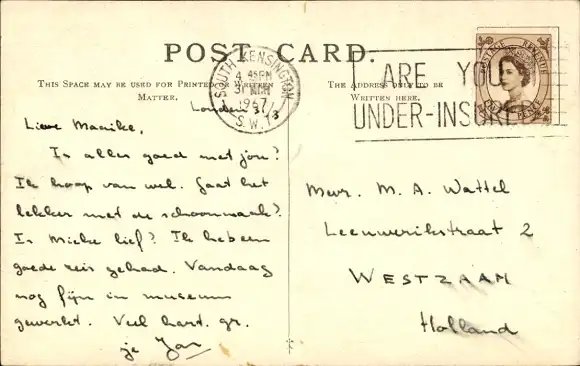 POST CARD.
THIS SPACE MAY BE USED FOR PRINTED OR WRITTEN
MATTER.
THE ADDRESS ONLY TO BE
WRITTEN HERE.
SOUTH KENSINGTON
4 45PM
31 MCH
1967
S.W.7
ARE YOU
UNDER-INSURED
POSTAGE REVENUE
London 31/3
Lieve Marijke,
Is alles goed met jou?
Ik hoop van wel. Gaat het
lekker met de schoonmaak?
Is Mieke lief? Ik heb een
goede reis gehad. Vandaag
nog fijn in museum
gewerkt. Veel hart. gr.
je Jan
Mevr. M. A. Wattel
Leeuwerikstraat 2
WESTZAAN
Holland